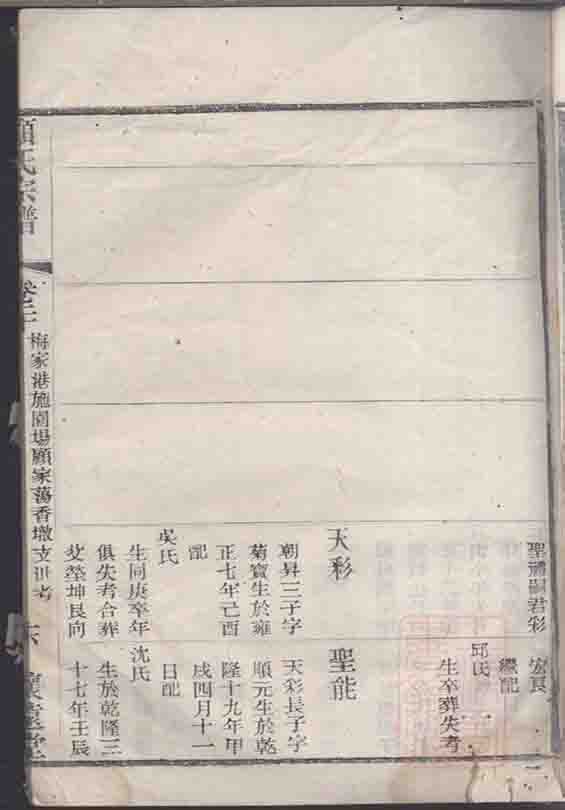 嗣君彩
天彩
朝昇三子字
菊寶生於雍
正七年己酉
配
吳氏
生同庚卒年
俱失考合葬
父塋坤艮向
繼配
邱氏
生卒葬失考
聖能
天彩長子字
順元生於乾
隆十九年甲
戌四月十一
日配
沈氏
生於乾隆三
十七年壬辰
顧氏宗譜
梅家港施園場顧家蕩香墩支世考
六